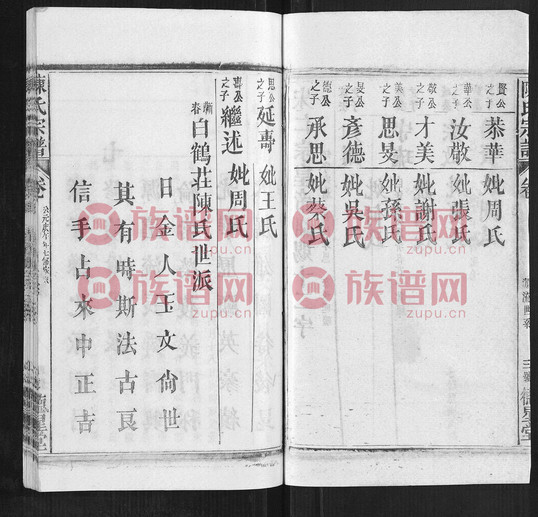 陳氏宗譜
卷
賢公之子 恭華 妣周氏
華公之子 汝敬 妣張氏
敬公之子 才美 妣謝氏
美公之子 思旻 妣孫氏
旻公之子 彥德 妣吳氏
德公之子 承思 妣蔡氏
思公之子 延壽 妣王氏
壽公之子 繼述 妣周氏
蘄春 白鶴莊陳氏世派
日金人玉文尙世
其有時斯法古良
信手占來中正吉
陳氏宗譜
卷
德星堂
族谱网
zupu.cn
族谱网
zupu.cn
族谱网
zupu.cn
族谱网
zupu.cn